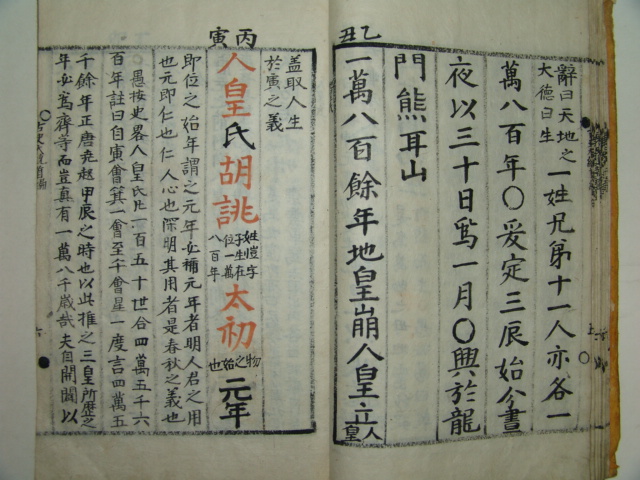 乙丑
辭曰天地之
大德曰生
一姓兄弟十一人亦各一
萬八百年〇爰定三辰始分晝
夜以三十日爲一月〇興於龍
門熊耳山
一萬八百餘年地皇崩人皇立人皇
丙寅
盖取人生
於寅之義
人皇氏胡洮
姓愷字
子生在
位一萬
八百年
太初
物之始也
元年
即位之始年謂之元年必補元年者明人君之用
也元即仁也仁人心也深明其用者是春秋之義也
愚按史畧人皇氏凡一百五十世合四萬五千六
百年註曰自寅會箕一會至千會星一度言四萬五
千餘年正唐堯起甲辰之時也以此推之三皇所歷之
年必爲齊等而豈真有一萬八千歲哉夫自開闢以